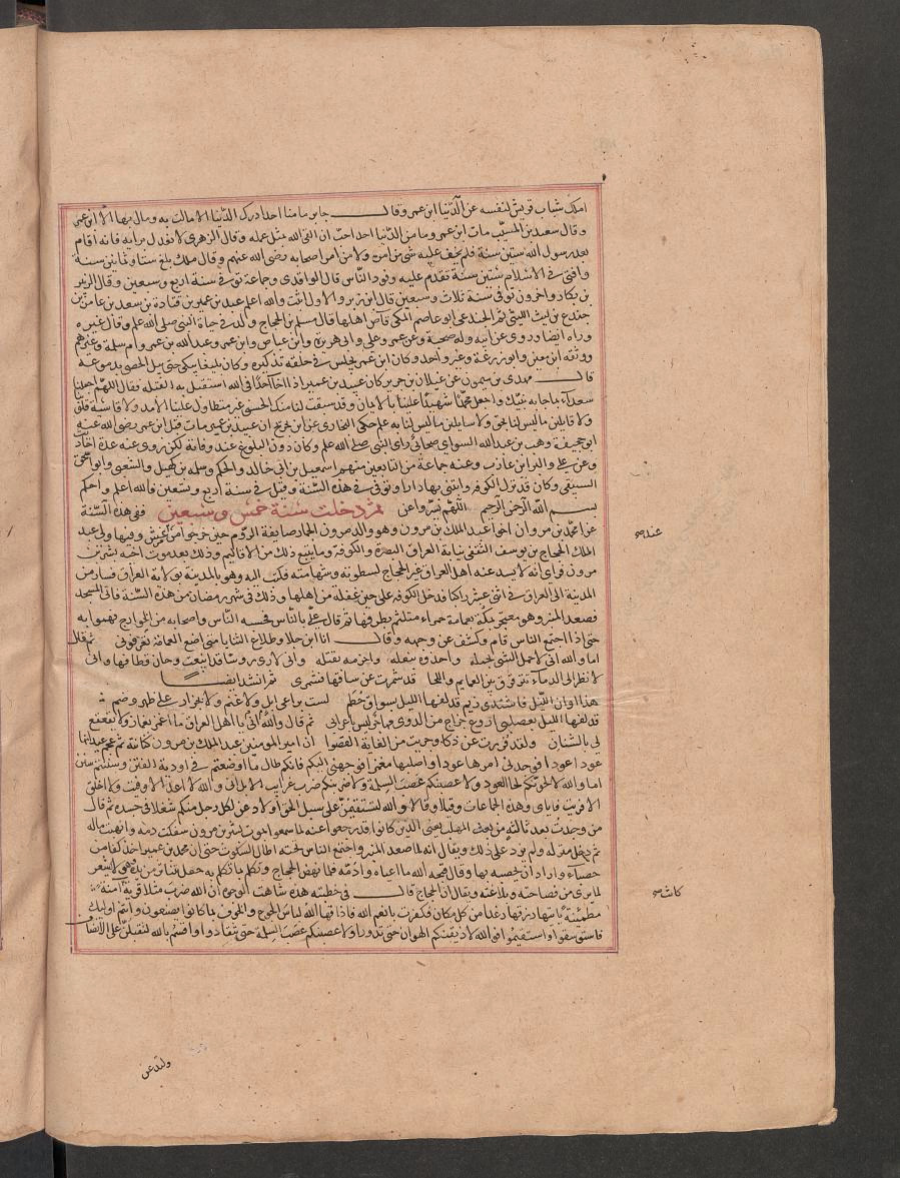 املك شباب قريش لنفسه عن الدنيا ابن عمر وقال جابر ما منا احد ادرك الدنيا الا مالت به ومال بها الا ابن عمر
وقال سعيد بن المسيب مات ابن عمر وما من الدنيا احد احب ان القى الله بمثل عمله وقال الزهري لا نعدل برايه فانه اقام
بعد رسول الله ستين سنة فلم يخف عليه شي من امره ولا من امر اصحابه رضى الله عنهم وقال ملك بلغ ستا وثمانين سنة
وافتى في الاسلام ستين سنة تقدم عليه وفود الناس قال الواقدى وجماعة توفي سنة اربع وسبعين وقال الزبير
بن بكار واخرون توفى سنة ثلاث وسبعين قال ابن نمير والاول اثبت والله اعلم عبيد بن عمير بن قتادة بن سعد بن عامر بن
جندع بن ليث الليثى ثم الجندعى ابو عاصم المكى قاص اهلها قال مسلم بن الحجاج ولد في حياة النبى صلى الله علم وقال غيره
وراه ايضا وروى عن ابيه وله صحبة وعن عمر وعلى وابى هريرة وابن عباس وابن عمر وعبد الله بن عمرو وام سلمة وغيرهم
ووثقه ابن معين وابو زرعة وغير واحد وكان ابن عمر يجلس في حلقته تذكيره وكان بليغا يبكى حتى يبل الحصى بدموعه
قال مهدى بن ميمون عن غيلان بن جرير كان عبيد بن عمير اذا اخا احدا فى الله استقبل به القبلة فقال اللهم اجعلنا
سعداء بما جا به نبيك واجعل محمدا شهيدا علينا بالايمان وقد سبقت لنا منك الحسنى غير متطاول علينا الامد ولا قاسية قلوبنا
ولا قايلين ما ليس لنا بحق ولا سايلين ما ليس لنا به علم حكى البخارى عن ابن جريج ان عبيد بن عمير مات قبل ابن عمر رضى الله عنه
ابو جحيفة وهب بن عبد الله السوآي صحابى راى النبى صلى الله علم وكان دون البلوغ عند وفاته لكن روى عنه عدة احاديث
وعن على والبرا بن عازب وعنه جماعة من التابعين منهم اسمعيل بن ابى خالد والحكم وسلمه بن كهيل والشعبى وابو اسحق
السبيعى وكان قد نزل الكوفه وابتنى بها دارا وتوفى في هذه السنة وقيل في سنة اربع وتسعين فالله اعلم واحكم
بسم الله الرحمن الرحيم اللهم يسر واعن ثم دخلت سنة خمس وسبعين ففى هذه السنة
غزا محمد بن مروان اخو عبد الملك بن مرون وهو والد مرون الحمار صايفة الروم حين خرجوا من مرعش وفيها ولى عبد
الملك الحجاج بن يوسف الثقفى نيابة العراق البصرة والكوفة وما يتبع ذلك من الاقاليم وذلك بعد موت اخيه بشر بن
مرون فراى انه لا يسد عنه اهل العراق غير الحجاج لسطوته وشهامته فكتب اليه وهو بالمدينة بولاية العراق فسار من
المدينة الى العراق في اثنى عشر راكبا فدخل الكوفة على حين غفلة من اهلها وذلك في شهر رمضان من هذه السنة فاتى المسجد
فصعد المنبر وهو معتجر بعمامة حمراء متلثم بطرفها ثم قال على بالناس فحسبه الناس واصحابه من الخوارج فهموا به
حتى اذا اجتمع الناس قام وكشف عن وجهه وقال انا ابن جلا وطلاع الثنايا متى اضع العمامة تعرفونى ثم قال
اما والله انى لاحمل الشى بحمله واحذوه بنعله واجزيه بمثله وانى لارى رؤسا قد اينعت وحان قطافها وانى
لانظر الى الدماء تترقرق بين العمايم واللحا قد شمرت عن ساقها فشمرى ثم انشد ايضا
هذا اوان الليل فاشتدى زيم قد لفها الليل بسواق حطم لست براعى ابل ولا غنم ولا بجزار على ظهر وضم
قد لفها الليل بعصلبى اروع خراج من الدوى مهاجر ليس باعرابى ثم قال والله انى يا اهل العراق ما اغمز بغماز ولا يقعقع
لي بالشنان ولقد فررت عن ذكا وجريت من الغاية القصوا ان امير المومنين عبد الملك بن مرون نثر كنانته ثم عجم عيدانها
عودا عودا فوجدنى امرها عودا واصلبها مغمزا فوجهنى اليكم فانكم طال ما اوضعتم في اودية الفتن وسننتم سنن
اما والله لالحونكم لحا العود ولاعصبنكم عصب السلمة ولاضربنكم ضرب غرايب الابل وانى والله لا اعد الا وفيت ولا اخلق
الا فريت فاياى وهذه الجماعات وقيلا وقالا والله لتستقيمن على سبيل الحق او لادعن لكل رجل منكم شغلا فى جسده ثم قال
من وجدت بعد ثالثة من بعث المهلب يعنى الذين كانوا قد رجعوا عنه لما سمعوا بموت بشر بن مرون سفكت دمه وانهبت ماله
ثم دخل منزله ولم يزد على ذلك ويقال انه لما صعد المنبر واجتمع الناس تحته اطال السكوت حتى ان محمد بن عمير اخذ كفا من
حصباء واراد ان يحصبه بها وقال قبحه الله ما اعياه واذمه فلما نهض الحجاج وتكلم بما تكلم به جعل تتناثر من يده وهو لا يشعر
لما يرى من فصاحته وبلاغته ويقال ان الحجاج قال في خطبته هذه شاهت الوجوه ان الله ضرب مثلا قرية آمنة
مطمئنة ياتيها رزقها رغدا من كل مكان فكفرت بانعم الله فاذاقها الله لباس الجوع والخوف بما كانوا يصنعون وانتم اوليك
فاستوسقوا واستقيموا فوالله لاذيقنكم الهوان حتى تدوروا ولاعصبنكم عصب السلمة حتى تنقادوا واقسم بالله لتقبلن على الانصاف
ولتدعن